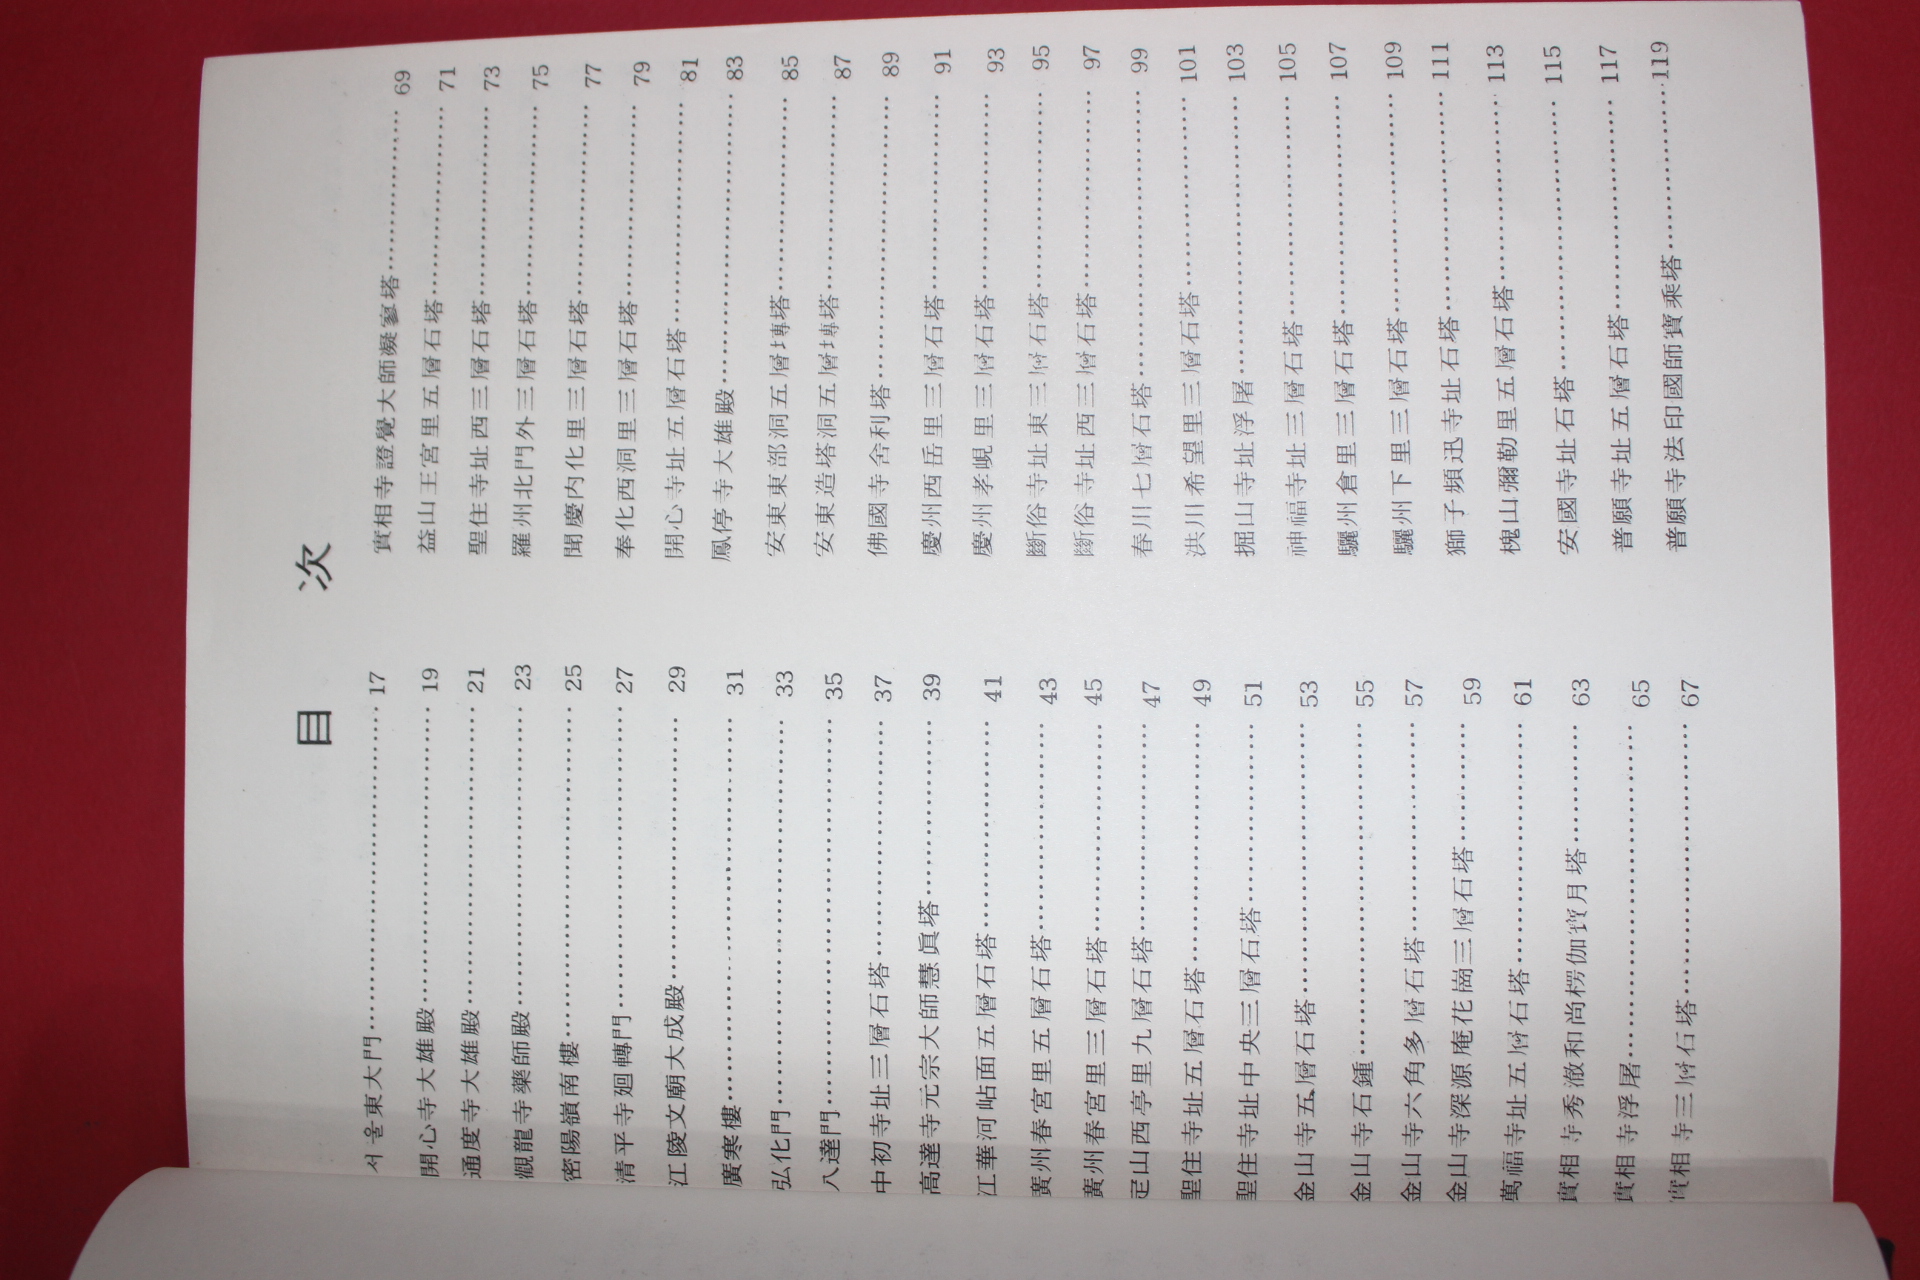 目 次
서울東大門 17
開心寺大雄殿 19
通度寺大雄殿 21
觀龍寺藥師殿 23
密陽嶺南樓 25
清平寺廻轉門 27
江陵文廟大成殿 29
廣寒樓 31
弘化門 33
八達門 35
中初寺址三層石塔 37
高達寺元宗大師慧眞塔 39
江華河岾面五層石塔 41
廣州春宮里五層石塔 43
廣州春宮里三層石塔 45
定山西亭里九層石塔 47
聖住寺址五層石塔 49
聖住寺址中央三層石塔 51
金山寺五層石塔 53
金山寺石鍾 55
金山寺六角多層石塔 57
金山寺深源庵花崗三層石塔 59
萬福寺址五層石塔 61
實相寺秀澈和尚楞伽寶月塔 63
實相寺浮屠 65
實相寺三層石塔 67
實相寺證覺大師凝寥塔 69
益山王宮里五層石塔 71
聖住寺址西三層石塔 73
羅州北門外三層石塔 75
聞慶内化里三層石塔 77
奉化西洞里三層石塔 79
開心寺址五層石塔 81
鳳停寺大雄殿 83
安東東部洞五層塼塔 85
安東造塔洞五層塼塔 87
佛國寺舍利塔 89
慶州西岳里三層石塔 91
慶州孝峴里三層石塔 93
斷俗寺址東三層石塔 95
斷俗寺址西三層石塔 97
春川七層石塔 99
洪川希望里三層石塔 101
掘山寺址浮屠 103
神福寺址三層石塔 105
驪州倉里三層石塔 107
驪州下里三層石塔 109
獅子頻迅寺址石塔 111
槐山彌勒里五層石塔 113
安國寺址石塔 115
普願寺址五層石塔 117
普願寺法印國師寶乘塔 119